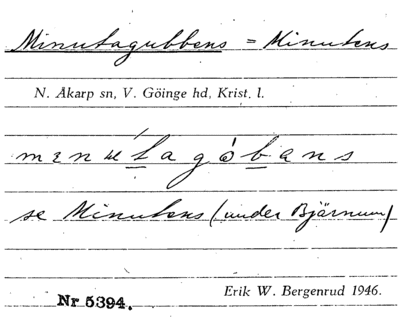 Minutagubbens = Minutens
N. Åkarp sn, V. Göinge hd, Krist. l.
se Minutens (under Bjärnum)
Nr 5394. Erik W. Bergenrud 1946.